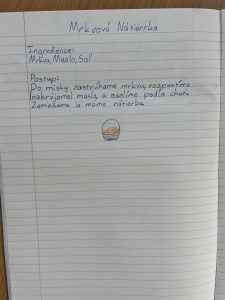 Mrkvová Nátierka
Ingredience:
Mrkva, Maslo, Soľ
Postup:
Do misky nastrúhame mrkvu, rozpustíme
(nakrájame) maslo, a osolíme podľa chuti.
Zamiešame a máme nátierku.